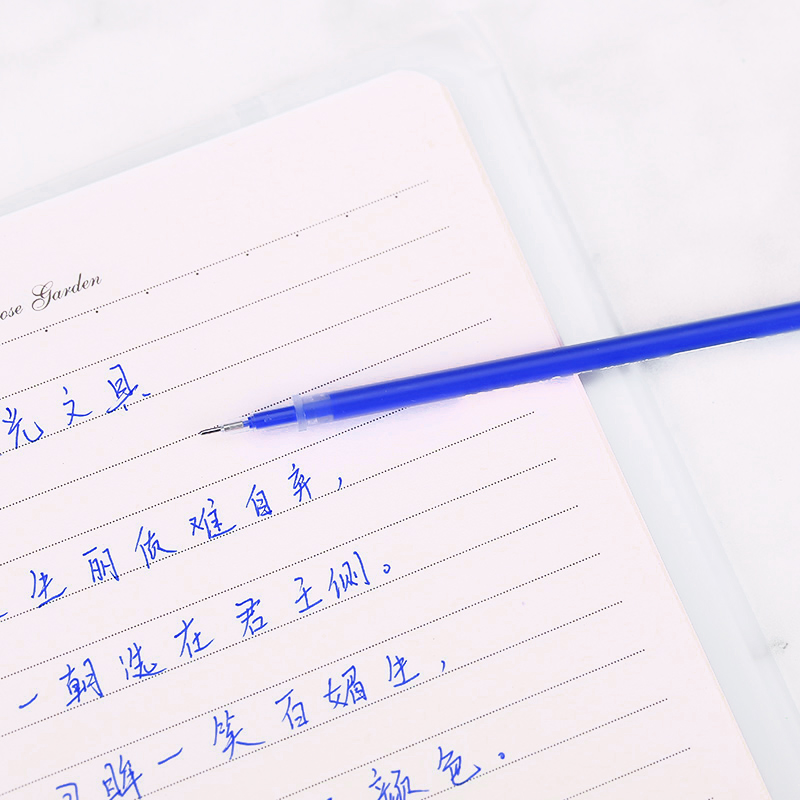 ose Garden
光文具
生丽质难自弃，
一朝选在君王侧。
眸一笑百媚生，
颜色。